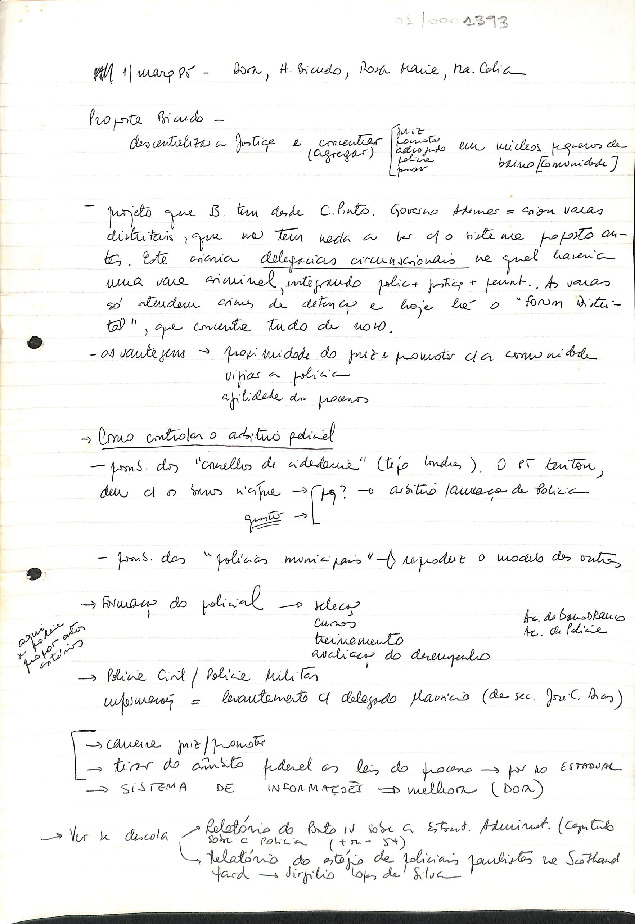 01/0001393
1/março 85 - Dora, H. Bicudo, Rosa Marie, Ma. Celia
Proposta Bicudo -
descentralizar a Justiça e concentrar (agregar) [juiz promotor advogado polícia povo] em núcleos pequenos de bairro [comunidade]
- projeto que B. tem desde C. Pinto. Governo Ademar = criou varas
distritais, que não tem nada a ver c/ o sistema proposto an-
tes. Este criaria delegacias circunscricionais na qual haveria
uma vara criminal, integrando polícia + justiça + penit.. As varas
só atendem crimes de detenção e hoje há o "forum distri-
tal", que concentra tudo de novo.
- as vantagens → proximidade do juiz e promotor c/ a comunidade
vigiar a polícia
agilidade dos processos
→ Como controlar o arbítrio policial
- poss. dos "conselhos de cidadania" (tipo Londres). O PT tentou,
deu c/ os burros n'água → [pq? → arbítrio/ameaça de Polícia
questão →
- poss. das "polícias municipais" → reproduz o modelo das outras
→ Formação do policial → seleção
cursos
treinamento
avaliação do desempenho
Ac. do Barro Branco
Ac. de Polícia
aqui a polícia propor atos
→ Polícia Civil / Polícia Militar
informações = levantamento c/ delegado Maurício (da sec. José C. Dias)
→ carreira juiz/promotor
→ tirar do âmbito federal as leis do processo → por no ESTADUAL
→ SISTEMA DE INFORMAÇÕES → melhora (DORA)
→ Ver se descola → Relatório do Porto IV sobre a Estrut. Administ. (Capítulo
sobre a Polícia (+ ou - 54)
→ Relatório do estágio de policiais paulistas na Scotland
Yard → Virgílio Lopes da Silva